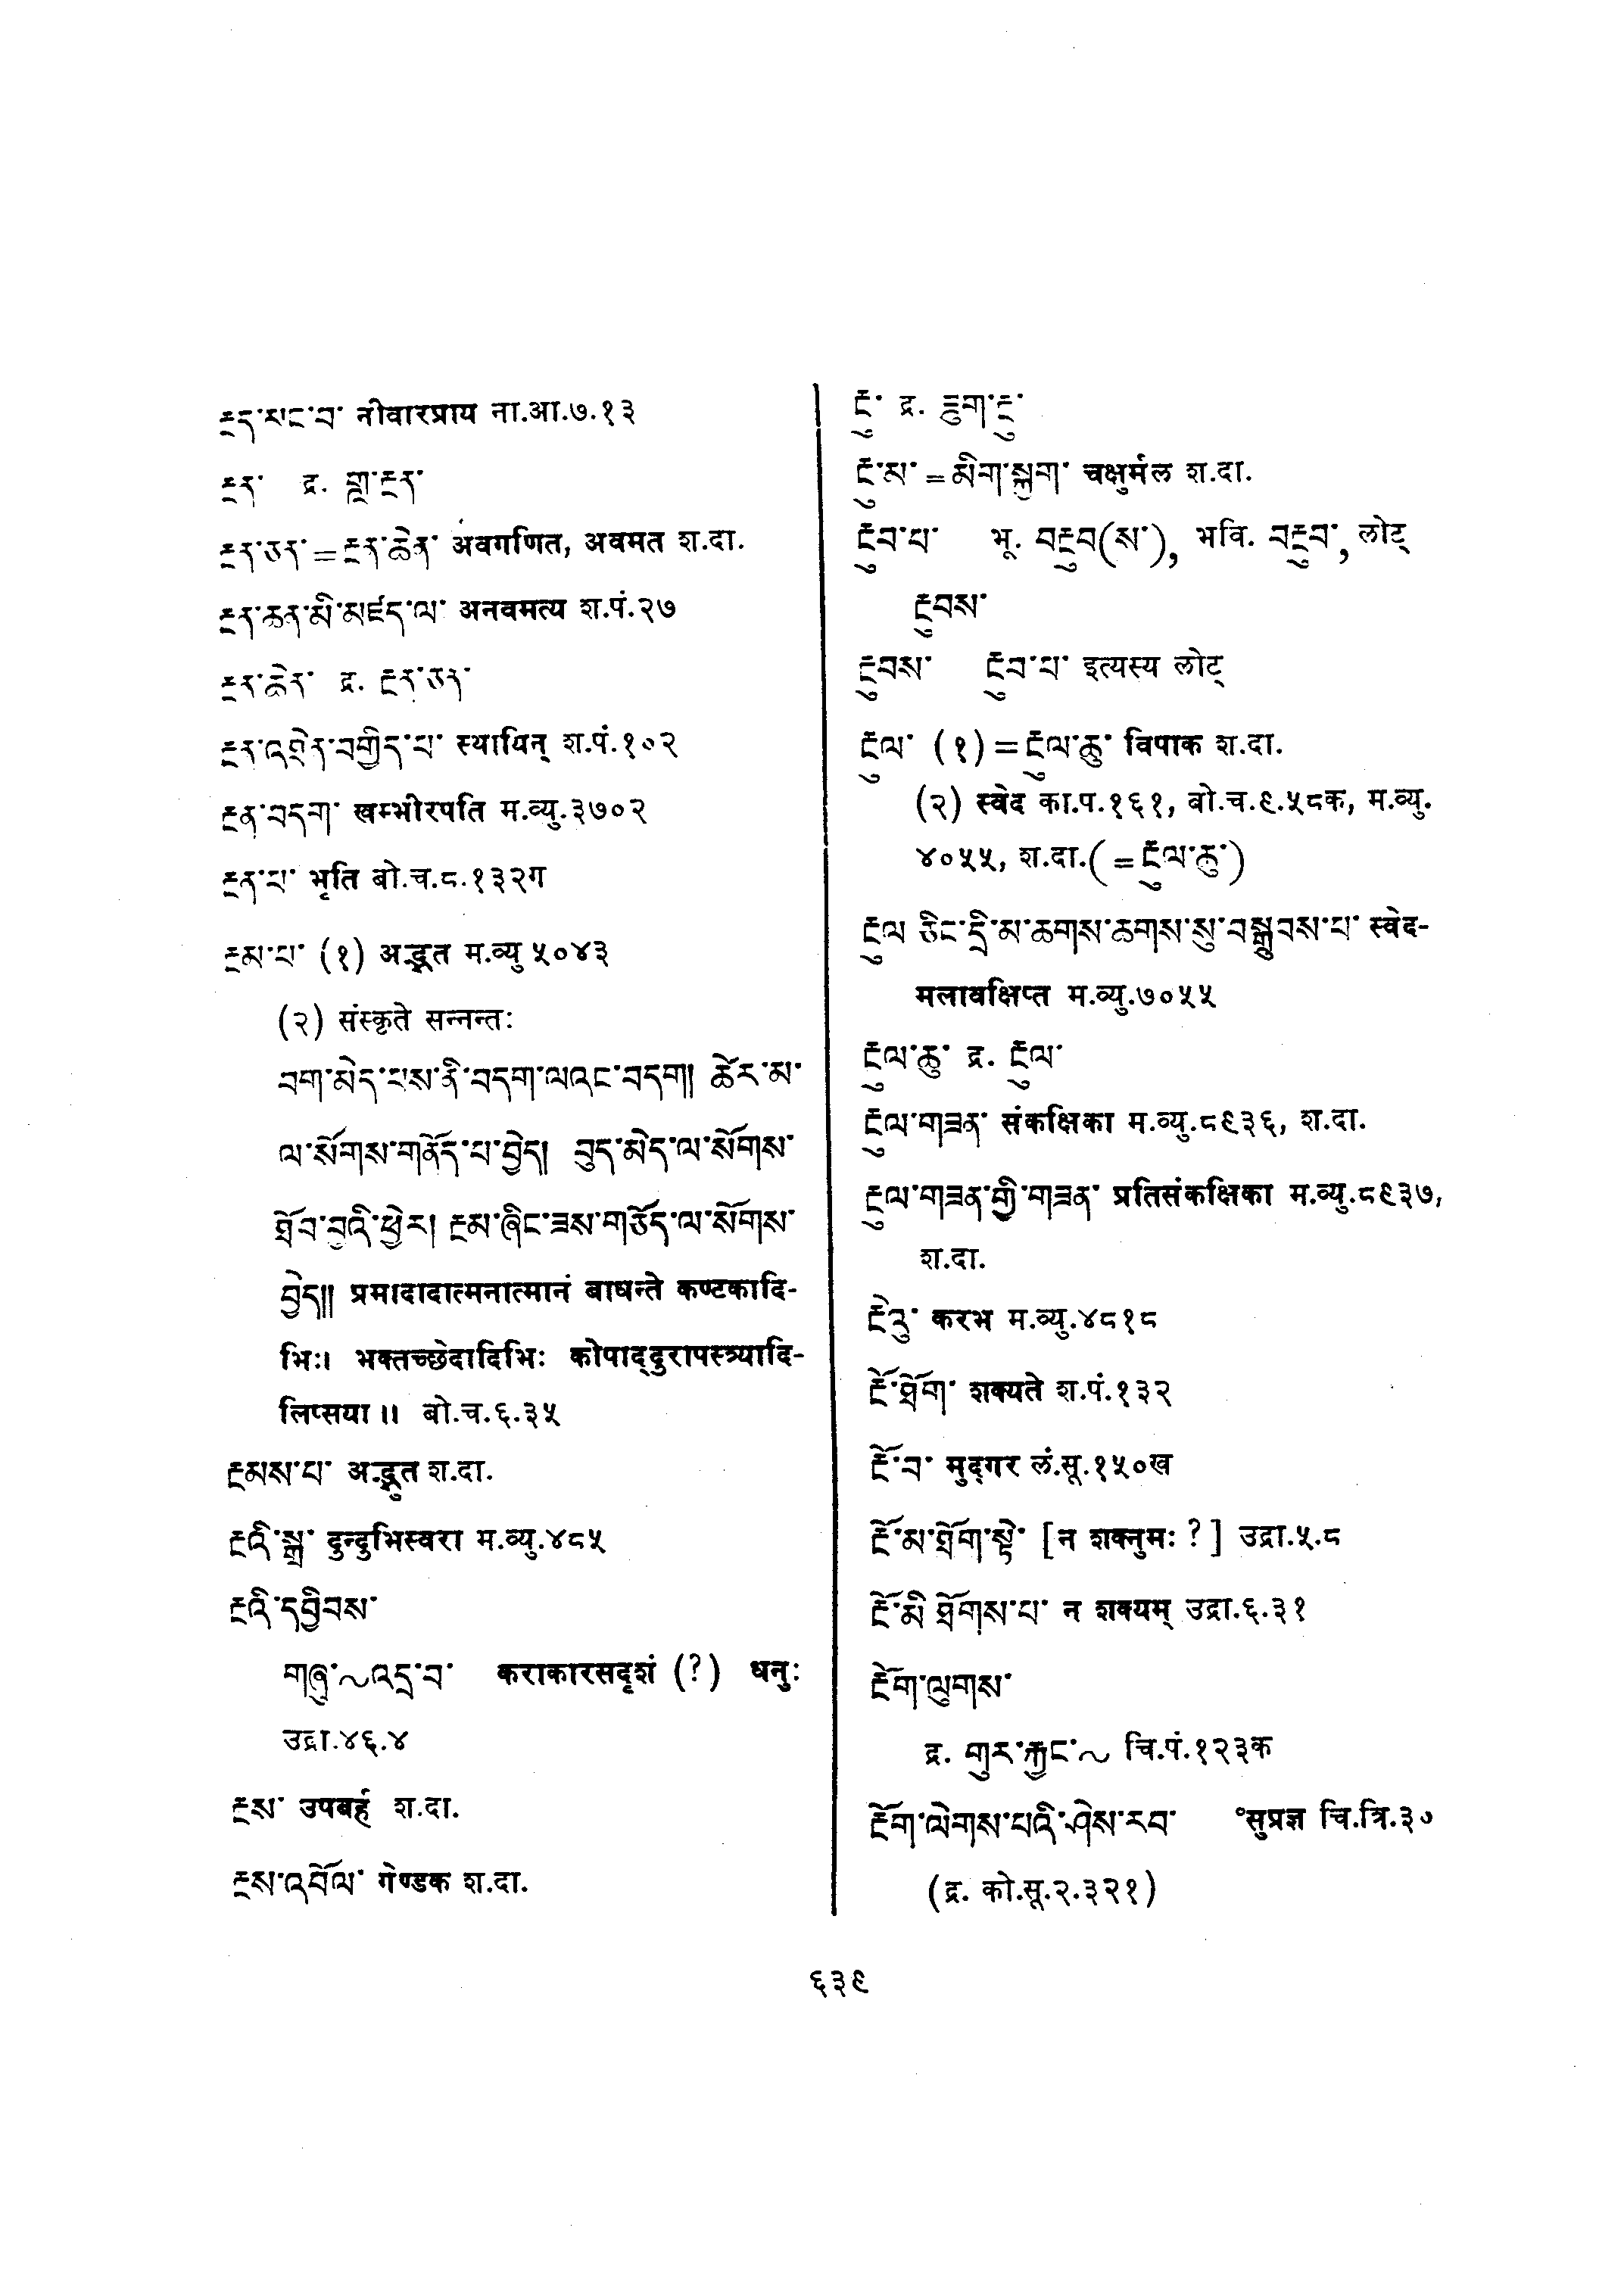 རྔད་སང་བ་ नीवारप्राय ना.आ.७.१३
རྔན་ द्र. གླ་རྔན་
རྔན་ཅན་=རྔན་ཆེན་ अवगणित, अवमत श.दा.
རྔན་ཆན་མི་མཛད་ལ་ अनवमत्य श.पं.२७
རྔན་ཆེན་ द्र. རྔན་ཅན་
རྔན་འཕྲེན་བགྱིད་པ་ स्थायिन् श.पं.१०२
རྔན་བདག་ खम्भीरपति म.व्यु.३७०२
རྔན་པ་ भृति बो.च.८.१३२ग
རྔམ་པ་ (१) अद्भुत म.व्यु ५०४३
(२) संस्कृते सन्नन्तः
བག་མེད་པས་ནི་བདག་ལའང་བདག། ཚེར་མ་
ལ་སོགས་གནོད་པ་བྱེད། བུད་མེད་ལ་སོགས་
ཐོབ་བྱའི་ཕྱིར། རྔམ་ཞིང་ཟས་གཅོད་ལ་སོགས་
བྱེད།། प्रमादादात्मनात्मानं बाधन्ते कण्टकादि-
भिः। भक्तच्छेदादिभिः कोपाद्दुरापस्त्र्यादि-
लिप्सया॥ बो.च.६.३५
རྔམས་པ་ अद्भुत श.दा.
རྔའི་སྒྲ་ दुन्दुभिस्वरा म.व्यु.४८५
རྔའི་དབྱིབས་
གཞུ་~འདྲ་བ་ कराकारसदृशं (?) धनुः
उद्रा.४६.४
རྔས་ उपबर्ह श.दा.
རྔས་འབོལ་ गेण्डक श.दा.
རྔུ་ द्र. ཟུག་རྔུ་
རྔུ་མ་=མིག་སྐྱག་ चक्षुर्मल श.दा.
རྔུབ་པ་ भू. བརྔུབ(ས་), भवि. བརྔུབ་, लोट्
རྔུབས་
རྔུབས་ རྔུབ་པ་ इत्यस्य लोट्
རྔུལ་ (१)=རྔུལ་ཆུ་ विपाक श.दा.
(२) स्वेद का.प.१६१, बो.च.९.५८क, म.व्यु.
४०५५, श.दा.(=རྔུལ་ཆུ་)
རྔུལ ཅིང་དྲི་མ་ཆགས་ཆགས་སུ་བསྒྲུབས་པ་ स्वेद-
मलावक्षिप्त म.व्यु.७०५५
རྔུལ་ཆུ་ द्र. རྔུལ་
རྔུལ་གཟན་ संकक्षिका म.व्यु.८९३६, श.दा.
རྔུལ་གཟན་གྱི་གཟན་ प्रतिसंकक्षिका म.व्यु.८९३७,
श.दा.
རྔེའུ་ करभ म.व्यु.४८१८
རྔོ་ཐོག་ शक्यते श.पं.१३२
རྔོ་བ་ मुद्गर लं.सू.१५०ख
རྔོ་མ་ཐོག་སྟེ་ [न शक्नुमः ?] उद्रा.५.८
རྔོ་མི་ཐོགས་པ་ न शक्यम् उद्रा.६.३१
རྔོག་ལུགས་
द्र. གུར་རྐྱང་~ चि.पं.१२३क
རྔོག་ལེགས་པའི་ཤེས་རབ་ °सुप्रज्ञ चि.त्रि.३०
(द्र. को.सू.२.३२१)
६३९